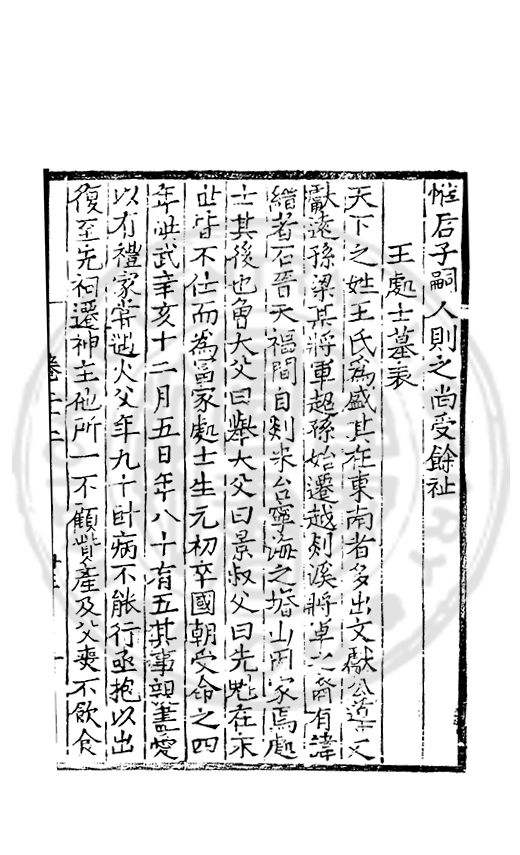 惟后子嗣人則之尚受餘祉
王處士墓表
天下之姓王氏為盛其在東南者多出文獻公導文
獻遠孫梁某將軍超孫始遷越剡溪將軍之裔有諱
縉者石晉天福間自剡來台寧海之㙛山因家焉處
士其後也曾大父曰舉大父曰景叔父曰先冕在宋
世皆不仕而為富家處士生元初卒國朝受命之四
年洪武辛亥十二月五日年八十有五其事親盡愛
以有禮家嘗遇火父年九十卧病不能行亟抱以出
復至先祠遷神主他所一不顧貲產及父喪不飲食
卷二十二